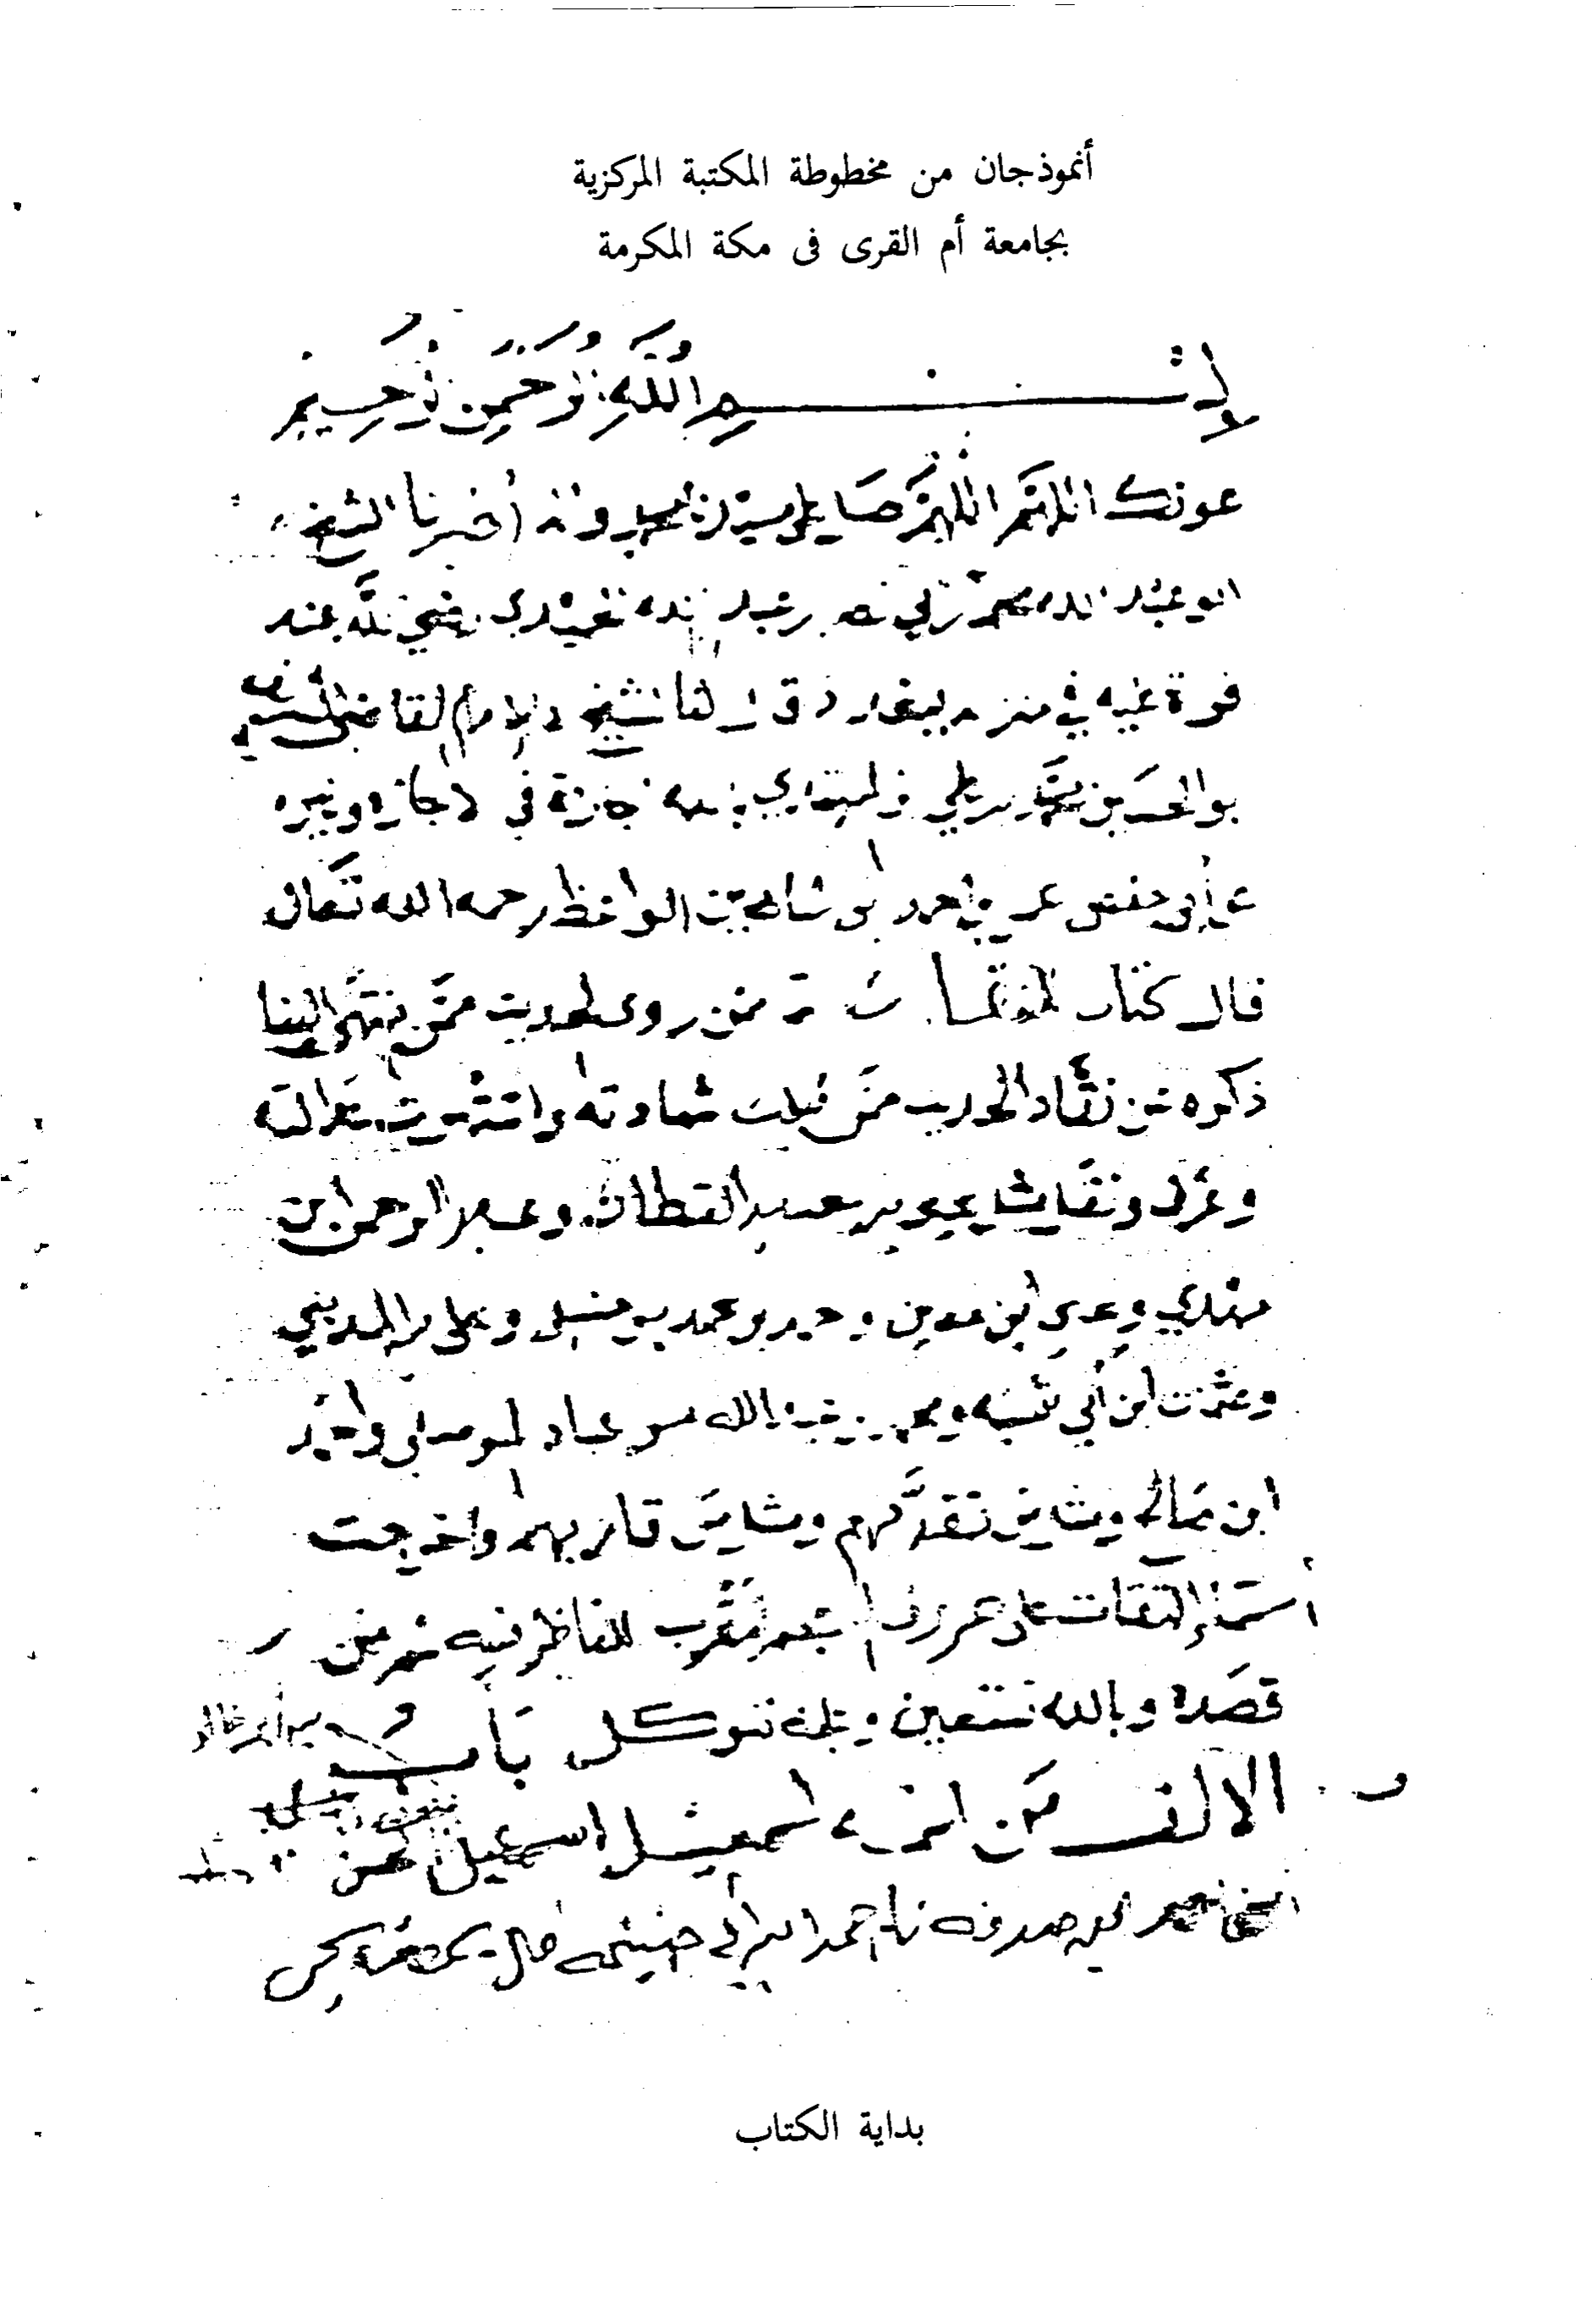 أنموذجان من مخطوطة المكتبة المركزية
بجامعة أم القرى فى مكة المكرمة
بسم الله الرحمن الرحيم
عونك اللهم اللهم صل على سيدنا محمد واله أخبرنا الشيخ
ابو عبد الله محمد بن أبي نصر بن عبد الله الحميدي رضي الله عنه
قراة عليه في منزله ببغداد قال لنا الشيخ الامام القاضي الشريف
بو الحسين محمد بن علي بن المهتدي بالله اجازة في الاجازه وغيره
عن أبي حفص عمر بن احمد ابن شاهين الواعظ رحمه الله تعالى
قال كتاب اسما ممن روى الحديث ممن انتهى الينا
ذكره عن نقاد الحديث ممن قبلت شهادته واشتهرت عدالته
وعرف ونقل مثل يحيى بن سعيد القطان وعبد الرحمن ابن
مهدي ويحيى ابن معين واحمد بن محمد بن حنبل وعلى بن المديني
وعثمان ابن أبي شيبه ومحمد بن عبد الله بن عمار الموصلي واحمد
ابن صالح ومثل من تقدمهم ومثل من قاربهم واخرجت
أسماء الثقات على حروف المعجم ليقرب للناظر فيه فهم من
قصده وبالله نستعين وعليه نتوكل باب
الالف من اسمه اسمعيل اسمعيل بن
بن صدقه نا احمد ابن أبي خيثمه قال يحيى
بداية الكتاب